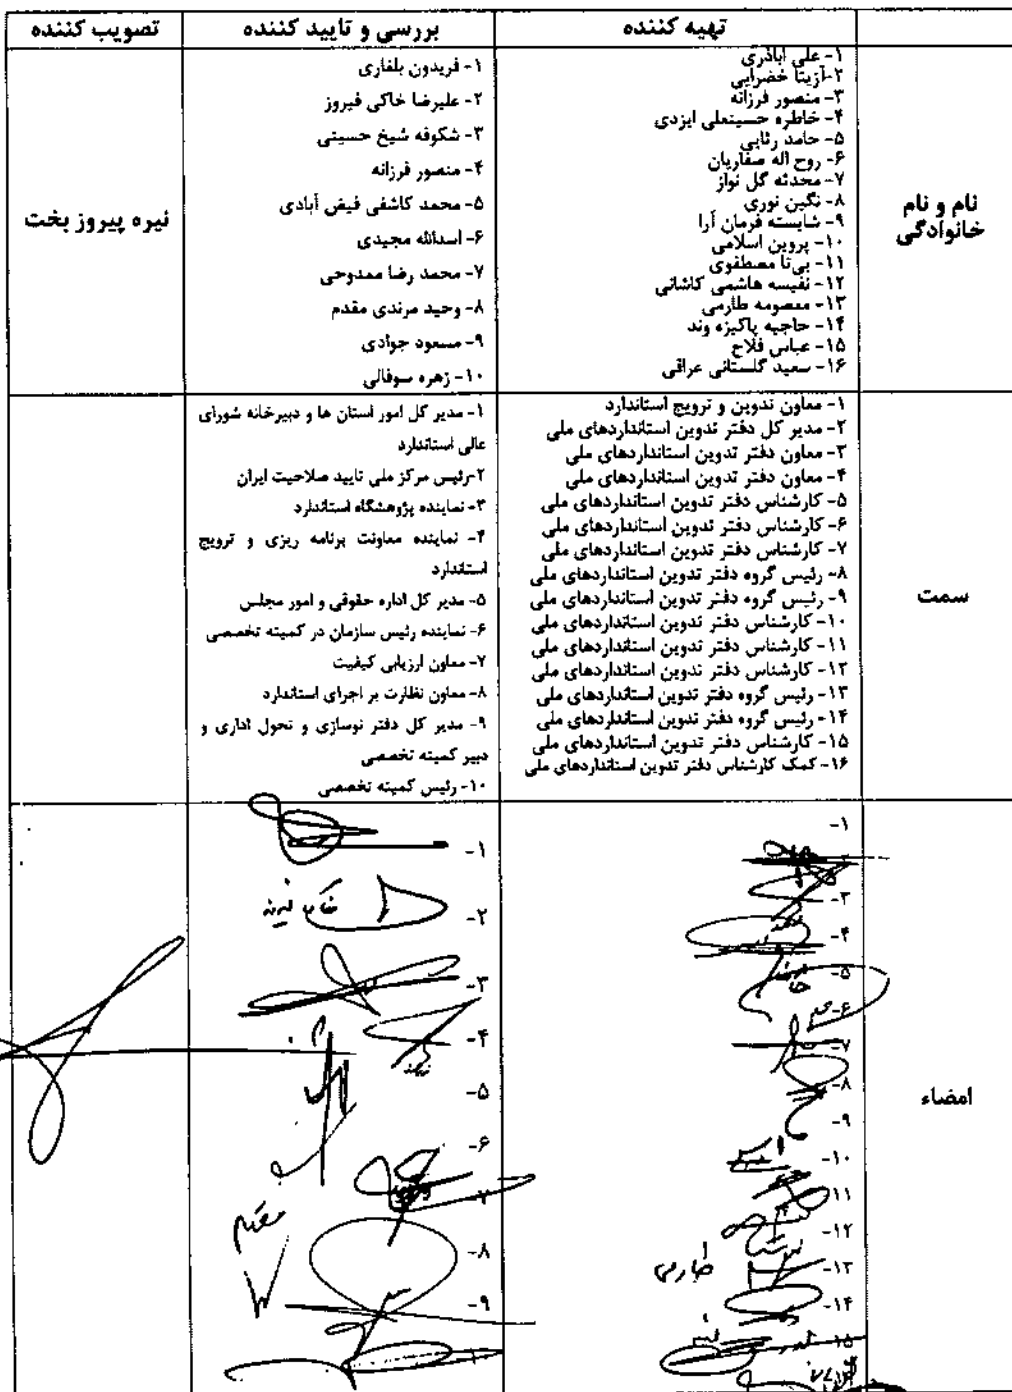 تهیه کننده
بررسی و تایید کننده
تصویب کننده
نام و نام
خانوادگی
۱- علی اباذری
۲-آزیتا خضرایی
۳- منصور فرزانه
۴- خاطره حسینعلی ایزدی
۵- حامد رئایی
۶- روح اله صفاریان
۷- محدثه گل نواز
۸- نگین نوری
۹- شایسته فرمان آرا
۱۰- پروین اسلامی
۱۱- بی‌تا مصطفوی
۱۲- نفیسه هاشمی کاشانی
۱۳- معصومه طارمی
۱۴- حاجیه پاکیزه وند
۱۵- عباس فلاح
۱۶- سعید گلستانی عراقی
۱- فریدون بلغاری
۲- علیرضا خاکی فیروز
۳- شکوفه شیخ حسینی
۴- منصور فرزانه
۵- محمد کاشفی فیض آبادی
۶- اسدالله مجیدی
۷- محمد رضا ممدوحی
۸- وحید مرندی مقدم
۹- مسعود جوادی
۱۰- زهره سوفالی
نیره پیروز بخت
سمت
۱- معاون تدوین و ترویج استاندارد
۲- مدیر کل دفتر تدوین استانداردهای ملی
۳- معاون دفتر تدوین استانداردهای ملی
۴- معاون دفتر تدوین استانداردهای ملی
۵- کارشناس دفتر تدوین استانداردهای ملی
۶- کارشناس دفتر تدوین استانداردهای ملی
۷- کارشناس دفتر تدوین استانداردهای ملی
۸- رئیس گروه دفتر تدوین استانداردهای ملی
۹- رئیس گروه دفتر تدوین استانداردهای ملی
۱۰- کارشناس دفتر تدوین استانداردهای ملی
۱۱- کارشناس دفتر تدوین استانداردهای ملی
۱۲- کارشناس دفتر تدوین استانداردهای ملی
۱۳- رئیس گروه دفتر تدوین استانداردهای ملی
۱۴- رئیس گروه دفتر تدوین استانداردهای ملی
۱۵- کارشناس دفتر تدوین استانداردهای ملی
۱۶- کمک کارشناس دفتر تدوین استانداردهای ملی
۱- مدیر کل امور استان ها و دبیرخانه شورای
عالی استاندارد
۲-رئیس مرکز ملی تایید صلاحیت ایران
۳- نماینده پژوهشگاه استاندارد
۴- نماینده معاونت برنامه ریزی و ترویج
استاندارد
۵- مدیر کل اداره حقوقی و امور مجلس
۶- نماینده رئیس سازمان در کمیته تخصصی
۷- معاون ارزیابی کیفیت
۸- معاون نظارت بر اجرای استاندارد
۹- مدیر کل دفتر نوسازی و تحول اداری و
دبیر کمیته تخصصی
۱۰- رئیس کمیته تخصصی
امضاء
۱-
۳-
۴-
۵-
۶-
۷-
۸-
۹-
۱۰-
۱۱-
۱۲-
۱۳- طارمی
۱۴-
۱۵-
۱-
۲-
۳-
۴-
۵-
۶-
۷-
۸- مقدم
۹-